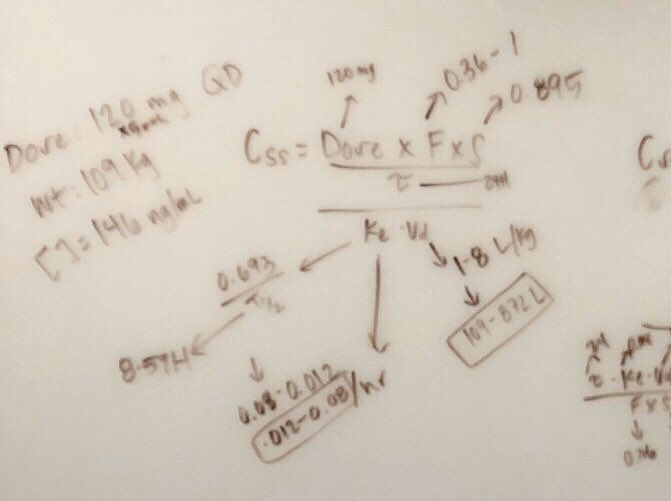 Dose: 120 mg QD
Wt: 109 Kg
[ ] = 146 ng/mL
120 mg
0.36-1
0.895
Css = Dose x F x S
τ
24H
Ke · Vd
0.693
T1/2
8-57H
0.08-0.012
.012-0.08/hr
1-8 L/Kg
109-872 L
τ · Ke · Vd
F x S